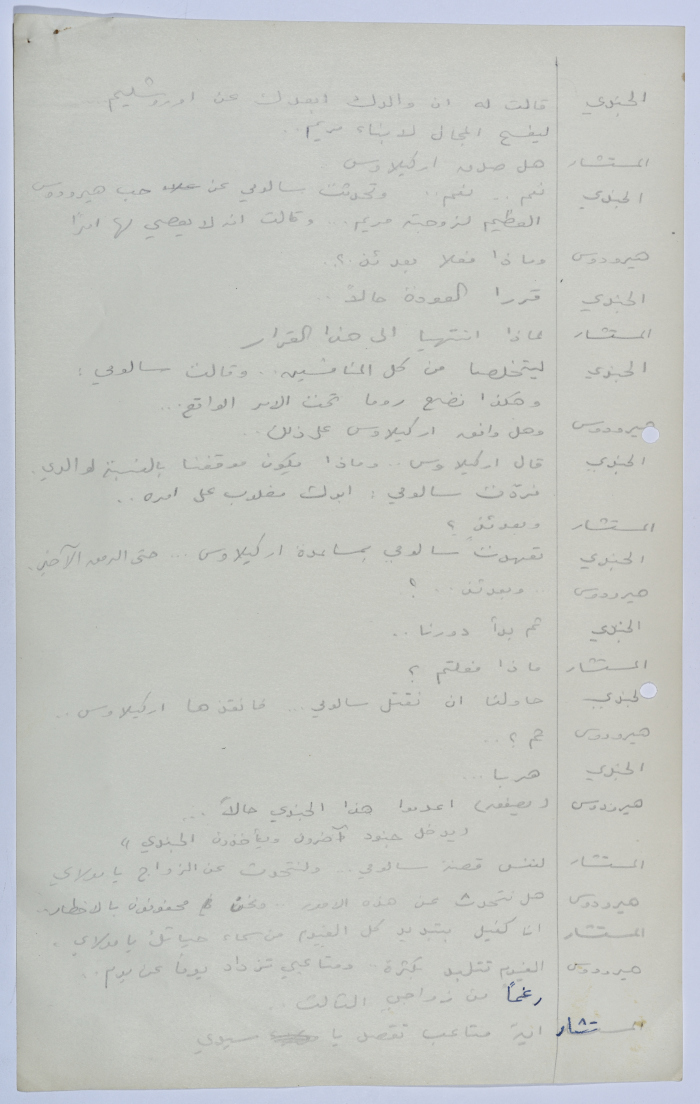 الجندي قالت له ان والدك ابعدك عن اورشليم ...
ليفسح المجال لابناء مريم ..
المستشار هل صدقه اركيلاوس
الجندي نعم .. نعم .. وتحدثت سالومي عن حب هيرودوس
العظيم لزوجته مريم ... وقالت انه لا يعصي لها امرًا
هيرودوس وماذا فعلا بعدئذ ؟ .
الجندي قررا العودة حالاً ..
المستشار لماذا انتهيا الى هذا القرار
الجندي ليتخلصا من كل المنافسين .. وقالت سالومي :
وهكذا نضع روما تحت الامر الواقع ...
هيرودوس وهل وافق اركيلاوس على ذلك ..
الجندي قال اركيلاوس .. وماذا يكون موقفنا بالنسبة لوالدي .
فردّت سالومي : ابوك مغلوب على امره ..
المستشار وبعدئذٍ ؟
الجندي تعهدت سالومي بمساعدة اركيلاوس ... حتى الرمق الأخير .
هيرودوس .. وبعدئذ .. ؟
الجندي ثم بدأ دورنا ..
المستشار ماذا فعلتم ؟
الجندي حاولنا ان نقتل سالومي ... فانقذها اركيلاوس ..
هيرودوس ثم ؟ ...
الجندي هربا ...
هيرودوس اعدموا هذا الجندي حالاً ...
( يدخل جنود آخرون ويأخذون الجندي )
المستشار لننس قصة سالومي .. ولنتحدث عن الزواج يا مولاي
هيرودوس هل نتحدث عن هذه الامور .. ونحن محفوفون بالاخطار ..
المستشار ان كفيل بتبديد كل الغيوم من سماء حياتك يا مولاي .
هيرودوس الغيوم تتلبد بكثرة .. ومتاعبي تزداد يوماً عن يوم ..
رغماً من زواجي الثالث ..
المستشار اية متاعب تقصد يا سيدي